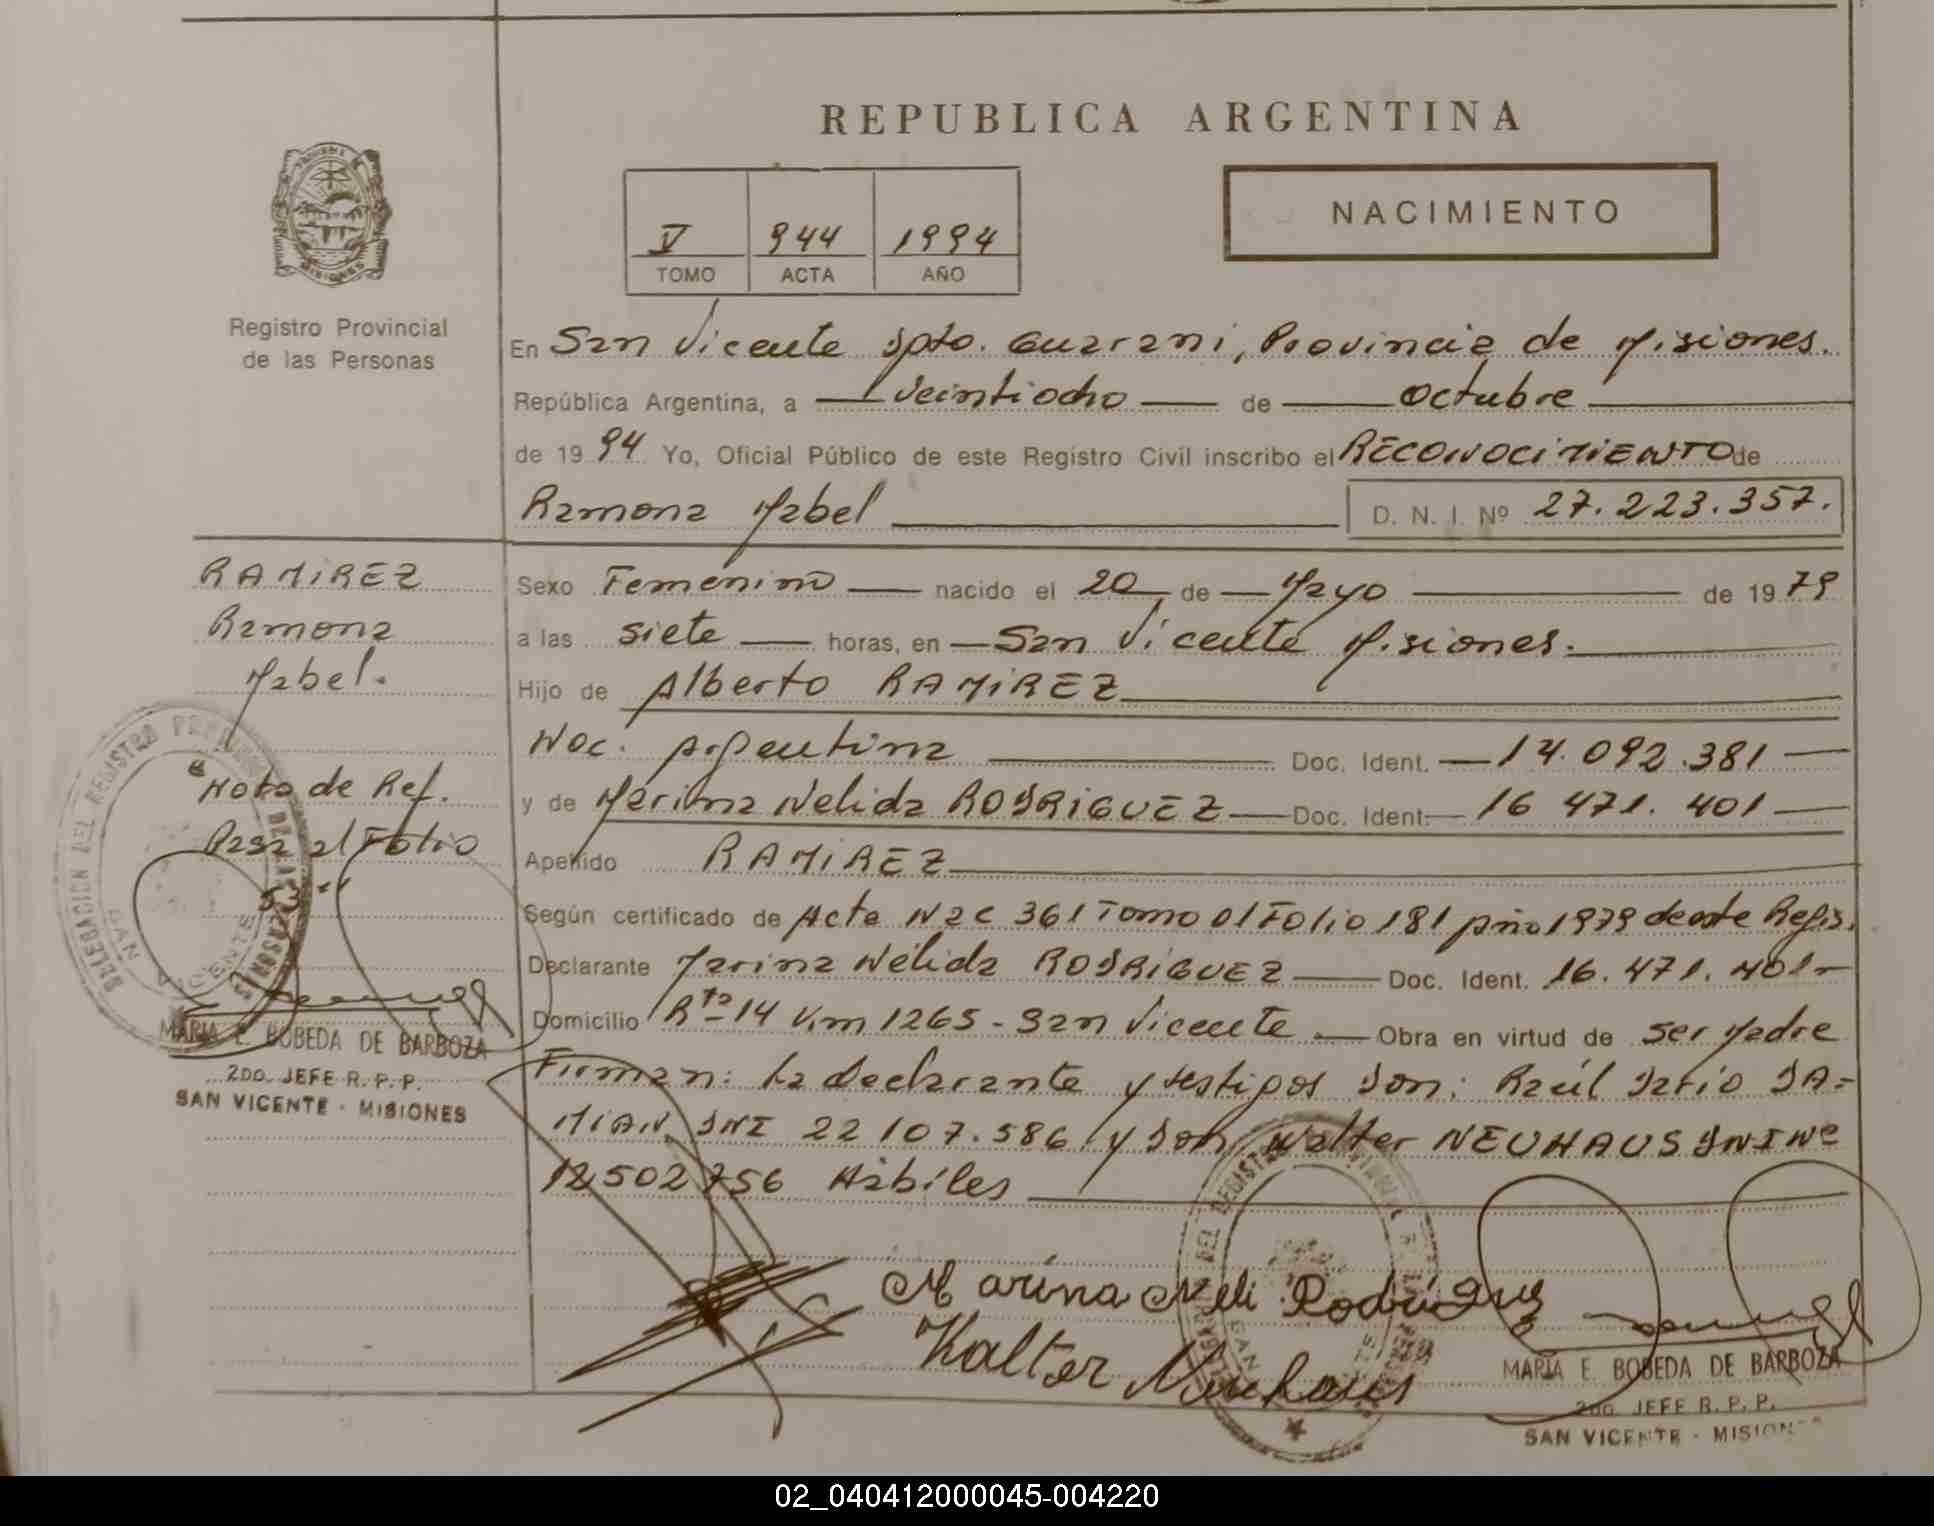 REPUBLICA ARGENTINA
NACIMIENTO
V 944 1994
TOMO ACTA AÑO
Registro Provincial
de las Personas
En San Vicente Dpto. Guarani, Provincia de Misiones.
República Argentina, a veintiocho de octubre
de 1994 Yo, Oficial Público de este Registro Civil inscribo el RECONOCIMIENTO de
Ramona Mabel D. N. I. Nº 27.223.357.
RAMIREZ
Ramona
Mabel.
"Nota de Ref.
Pasa al Folio
53"
MARIA E. BOBEDA DE BARBOZA
2DO. JEFE R. P. P.
SAN VICENTE - MISIONES
Sexo Femenino nacido el 20 de Mayo de 1979
a las siete horas, en San Vicente Misiones.
Hijo de Alberto RAMIREZ
Nac. Argentina Doc. Ident. 14.092.381
y de Marina Nelida RODRIGUEZ Doc. Ident. 16 471.401
Apellido RAMIREZ
Según certificado de Acta Nac 361 Tomo 01 Folio 181 Año 1979 de este Regis.
Declarante Marina Nélida RODRIGUEZ Doc. Ident. 16.471.401
Domicilio Rta 14 Km 1265 - San Vicente. Obra en virtud de ser Madre
Firman: la declarante y testigos Don: Raúl Darío DA=
MIAN, DNI 22 107.586 y Don Walter NEUHAUS DNI Nº
12502756 Hábiles
Marina Neli Rodriguez
Walter Neuhaus
DELEGACION DEL REGISTRO PROVINCIAL DE LAS PERSONAS
SAN VICENTE
MARIA E. BOBEDA DE BARBOZA
2DO. JEFE R. P. P.
SAN VICENTE - MISIONES
02_040412000045-004220